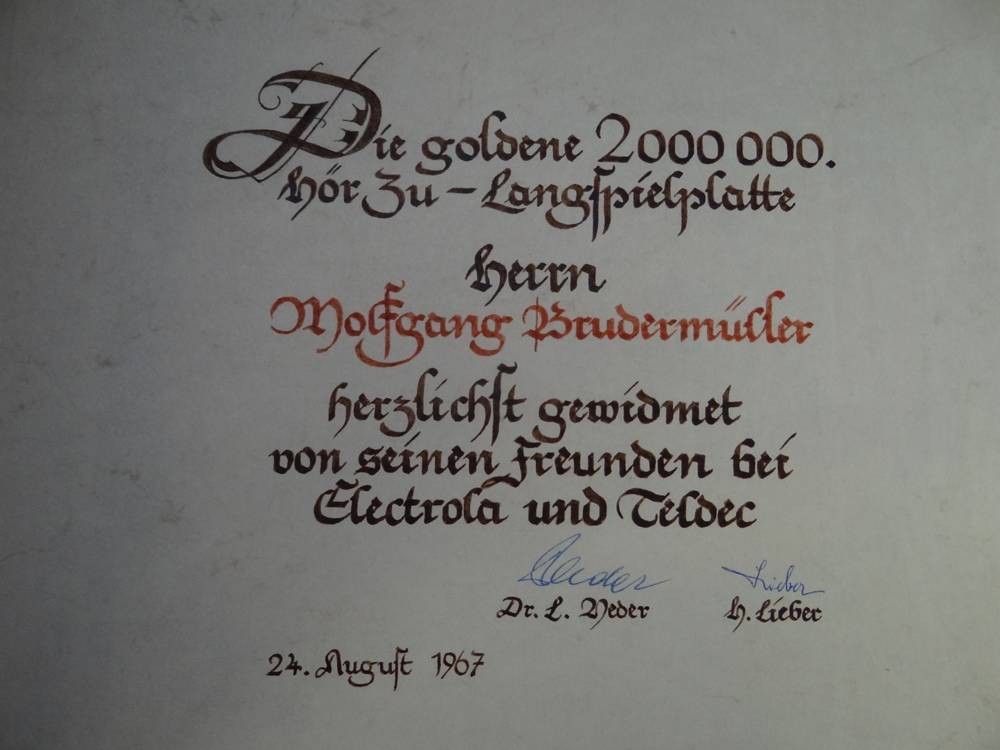 Die goldene 2000 000.
Hör Zu - Langspielplatte
Herrn
Wolfgang Brudermüller
herzlichst gewidmet
von seinen Freunden bei
Electrola und Teldec
Veder Lieber
Dr. L. Veder H. Lieber
24. August 1967